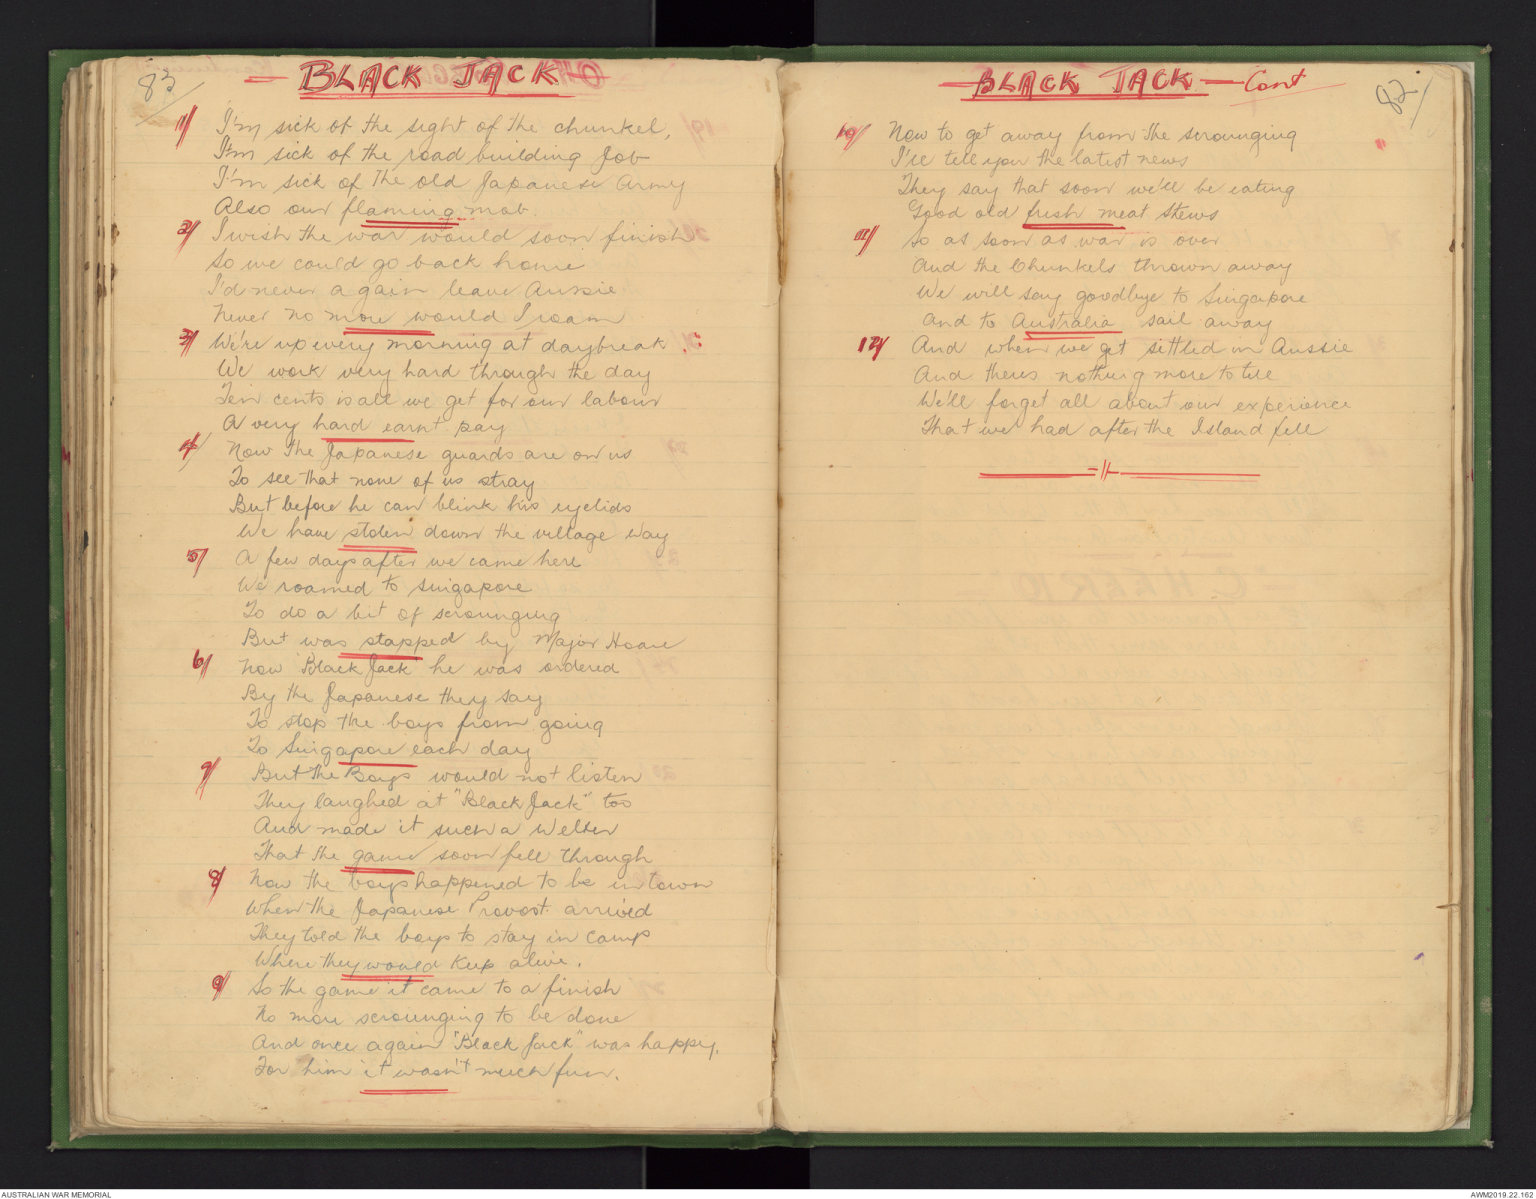 83
BLACK JACK
1/ I'm sick of the sight of the chunkel,
I'm sick of the road building Job
I'm sick of the old Japanese Army
Also our flaming mob.
2/ I wish the war would soon finish
So we could go back home
I'd never again leave Aussie
Never no more would I roam
3/ We're up every morning at daybreak.
We work very hard through the day
Ten cents is all we get for our labour
A very hard earnt pay
4/ Now the Japanese guards are on us
To see that none of us stray
But before he can blink his eyelids
We have stolen down the village way
5/ A few days after we came here
We roamed to Singapore
To do a bit of scrounging
But was stopped by Major Hoare
6/ Now Black Jack he was ordered
By the Japanese they say
To stop the boys from going
To Singapore each day
7/ But the Boys would not listen
They laughed at "Black Jack" too
And made it such a Welter
That the game soon fell through
8/ Now the boys happened to be in town
When the Japanese Provost arrived
They told the boys to stay in camp
Where they would keep alive.
9/ So the game it came to a finish
No more scrounging to be done
And once again "Black Jack" was happy,
For him it wasn't much fun.
BLACK JACK - Cont
82/
10/ Now to get away from the scrounging
I'll tell you the latest news
They say that soon we'll be eating
Good old fresh meat stews
11/ So as soon as war is over
And the Chunkels thrown away
We will say goodbye to Singapore
And to Australia sail away
12/ And when we get settled in Aussie
And theres nothing more to tell
We'll forget all about our experience
That we had after the Island fell
AUSTRALIAN WAR MEMORIAL
AWM2019.22.162